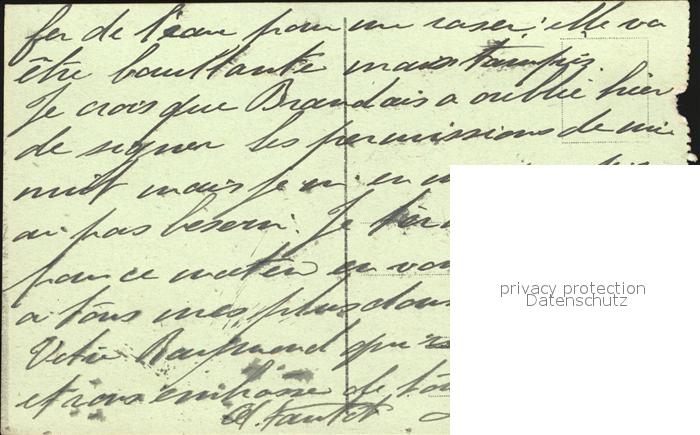 fer de l'eau pour me raser: elle va
être bouillante mais tampis.
Je crois que Brandais a oublié hier
de signer les permissions de mi-
nuit mais je n'en
ai pas besoin. Je
pour ce matin en
à tous mes plus doux
Votre Raymond qui
et vous embrasse de
A. Tantôt
privacy protection
Datenschutz